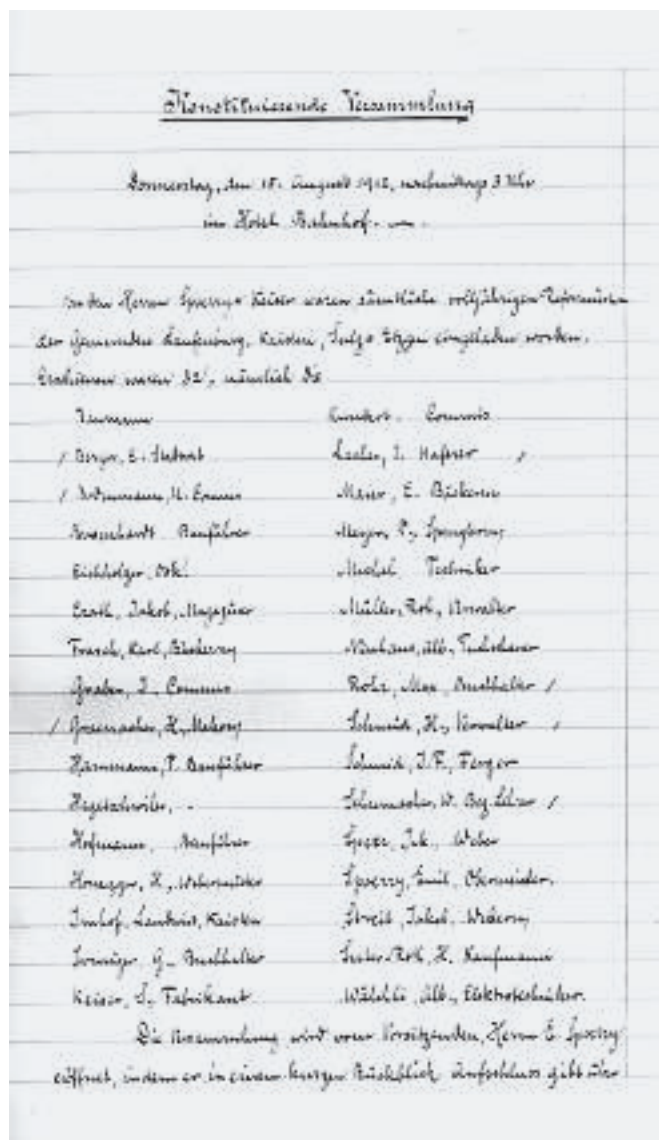 Konstituierende Versammlung
Donnerstag, den 15. August 1912, nachmittags 3 Uhr
im Hotel Bahnhof.
Von den Herren Spoerry & Keiser waren sämtliche volljährigen Reformierten
der Gemeinden Laufenburg, Kaisten, Sulz & Etzgen eingeladen worden.
Erschienen waren 32, nämlich die
Herren
/ Berger, E.
H.
Bauführer
Eichholzer, Osk.
Erath, Jakob, Magaziner
Frasch, Karl, Bäckerey
Graber, J. Commis
/ H.
Hammann, P. Bauführer
Hegetschwiler, -
Hofmann, Bauführer
Honegger, H., Webermeister
Imhof, Landwirt, Kaisten
G. Buchhalter
Keiser, J. Fabrikant
Commis
J. Hafner /
Meier, E. Bäckerei
Meyer, P., Spenglerey
Michel Techniker
Müller, Rob., Verwalter
Neuhaus, Alb., Tuchscherer
Rohr, Max, Buchhalter /
Schmid, H., Verwalter /
Schmid, J. F., Ferger
Schumacher, W. Bez. Lehrer /
Jak., Weber
Spoerry, Emil, Obermeister.
Streib, Jakob, Weberey
Suter-Roth, H. Kaufmann
Wälchli, Alb., Elektrotechniker.
Die Versammlung wird vom Vorsitzenden, Herrn E. Spoerry
eröffnet, indem er in einem kurzen Rückblick Aufschluss gibt über